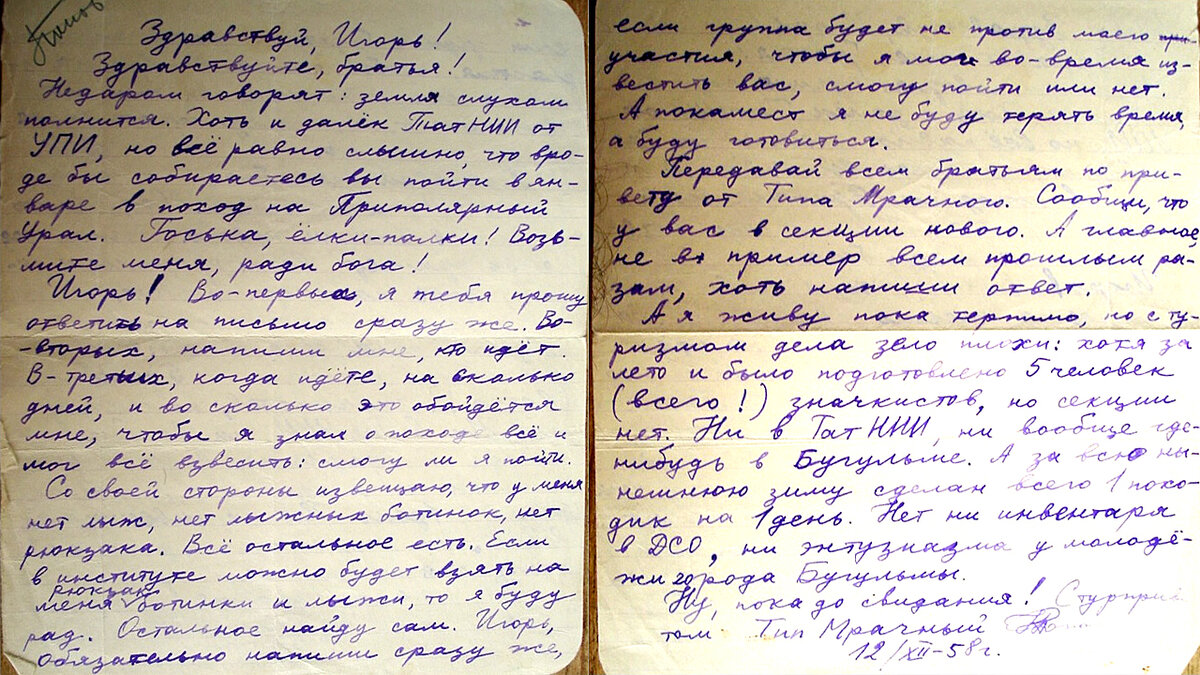 Попов
Здравствуй, Игорь!
Здравствуйте, братья!
Недаром говорят: земля слухом
полнится. Хоть и далёк ТатНИИ от
УПИ, но всё равно слышно, что вро-
де бы собираетесь вы пойти в ян-
варе в поход на Приполярный
Урал. Госька, ёлки-палки! Возь-
мите меня, ради бога!
Игорь! Во-первых, я тебя прошу
ответить на письмо сразу же. Во-
-вторых, напиши мне, кто идёт.
В-третьих, когда идёте, на сколько
дней, и во сколько это обойдётся
мне, чтобы я знал о походе всё и
мог всё взвесить: смогу ли я пойти.
Со своей стороны извещаю, что у меня
нет лыж, нет лыжных ботинок, нет
рюкзака. Всё остальное есть. Если
в институте можно будет взять на
рюкзак
меня ботинки и лыжи, то я буду
рад. Остальное найду сам. Игорь,
обязательно напиши сразу же,
если группа будет не против моего
участия, чтобы я мог во-время из-
вестить вас, смогу пойти или нет.
А покамест я не буду терять время,
а буду готовиться.
Передавай всем братьям по при-
вету от Типа Мрачного. Сообщи, что
у вас в секции нового. А главное,
не в пример всем прошлым ра-
зам, хоть напиши ответ.
А я живу пока терпимо, но с ту-
ризмом дела зело плохи: хотя за
лето и было подготовлено 5 человек
(всего!) значкистов, но секции
нет. Ни в ТатНИИ, ни вообще где-
нибудь в Бугульме. А за всю ны-
нешнюю зиму сделан всего 1 похо-
дик на 1 день. Нет ни инвентаря
в ДСО, ни энтузиазма у молодё-
жи города Бугульмы.
Ну, пока до свидания! С турприве
том Тип Мрачный
12/XII-58г.